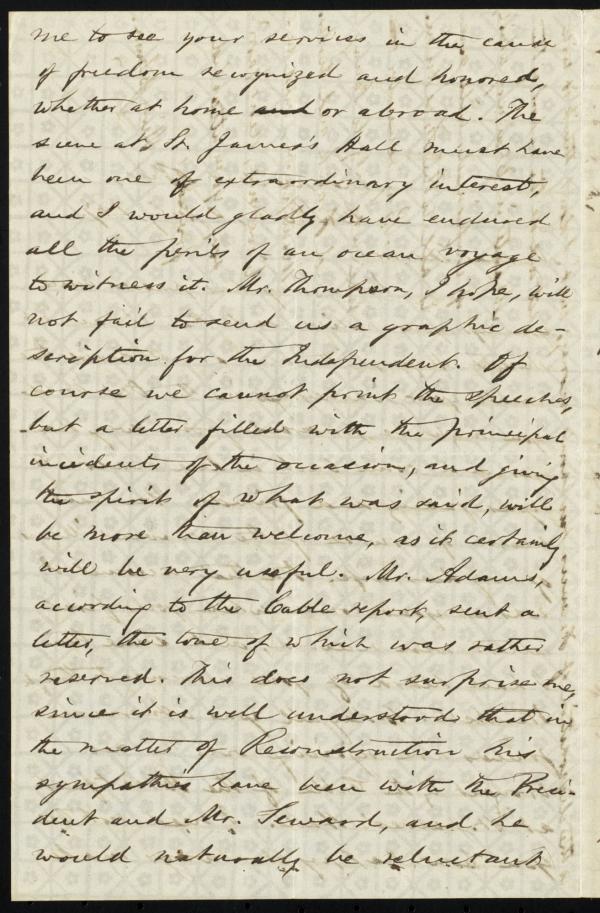 me to see your services in the cause
of freedom recognized and honored,
whether at home and or abroad. The
scene at St. James's Hall must have
been one of extraordinary interest,
and I would gladly have endured
all the perils of an ocean voyage
to witness it. Mr. Thompson, I hope, will
not fail to send us a graphic de-
scription for the Independent. Of
course we cannot print the speeches,
but a letter filled with the principal
incidents of the occasion, and giving
the spirit of what was said, will
be more than welcome, as it certainly
will be very useful. Mr. Adams,
according to the Cable report, sent a
letter, the tone of which was rather
reserved. This does not surprise me,
since it is well understood that in
the matter of Reconstruction his
sympathies have been with the Presi-
dent and Mr. Seward, and he
would naturally be reluctant